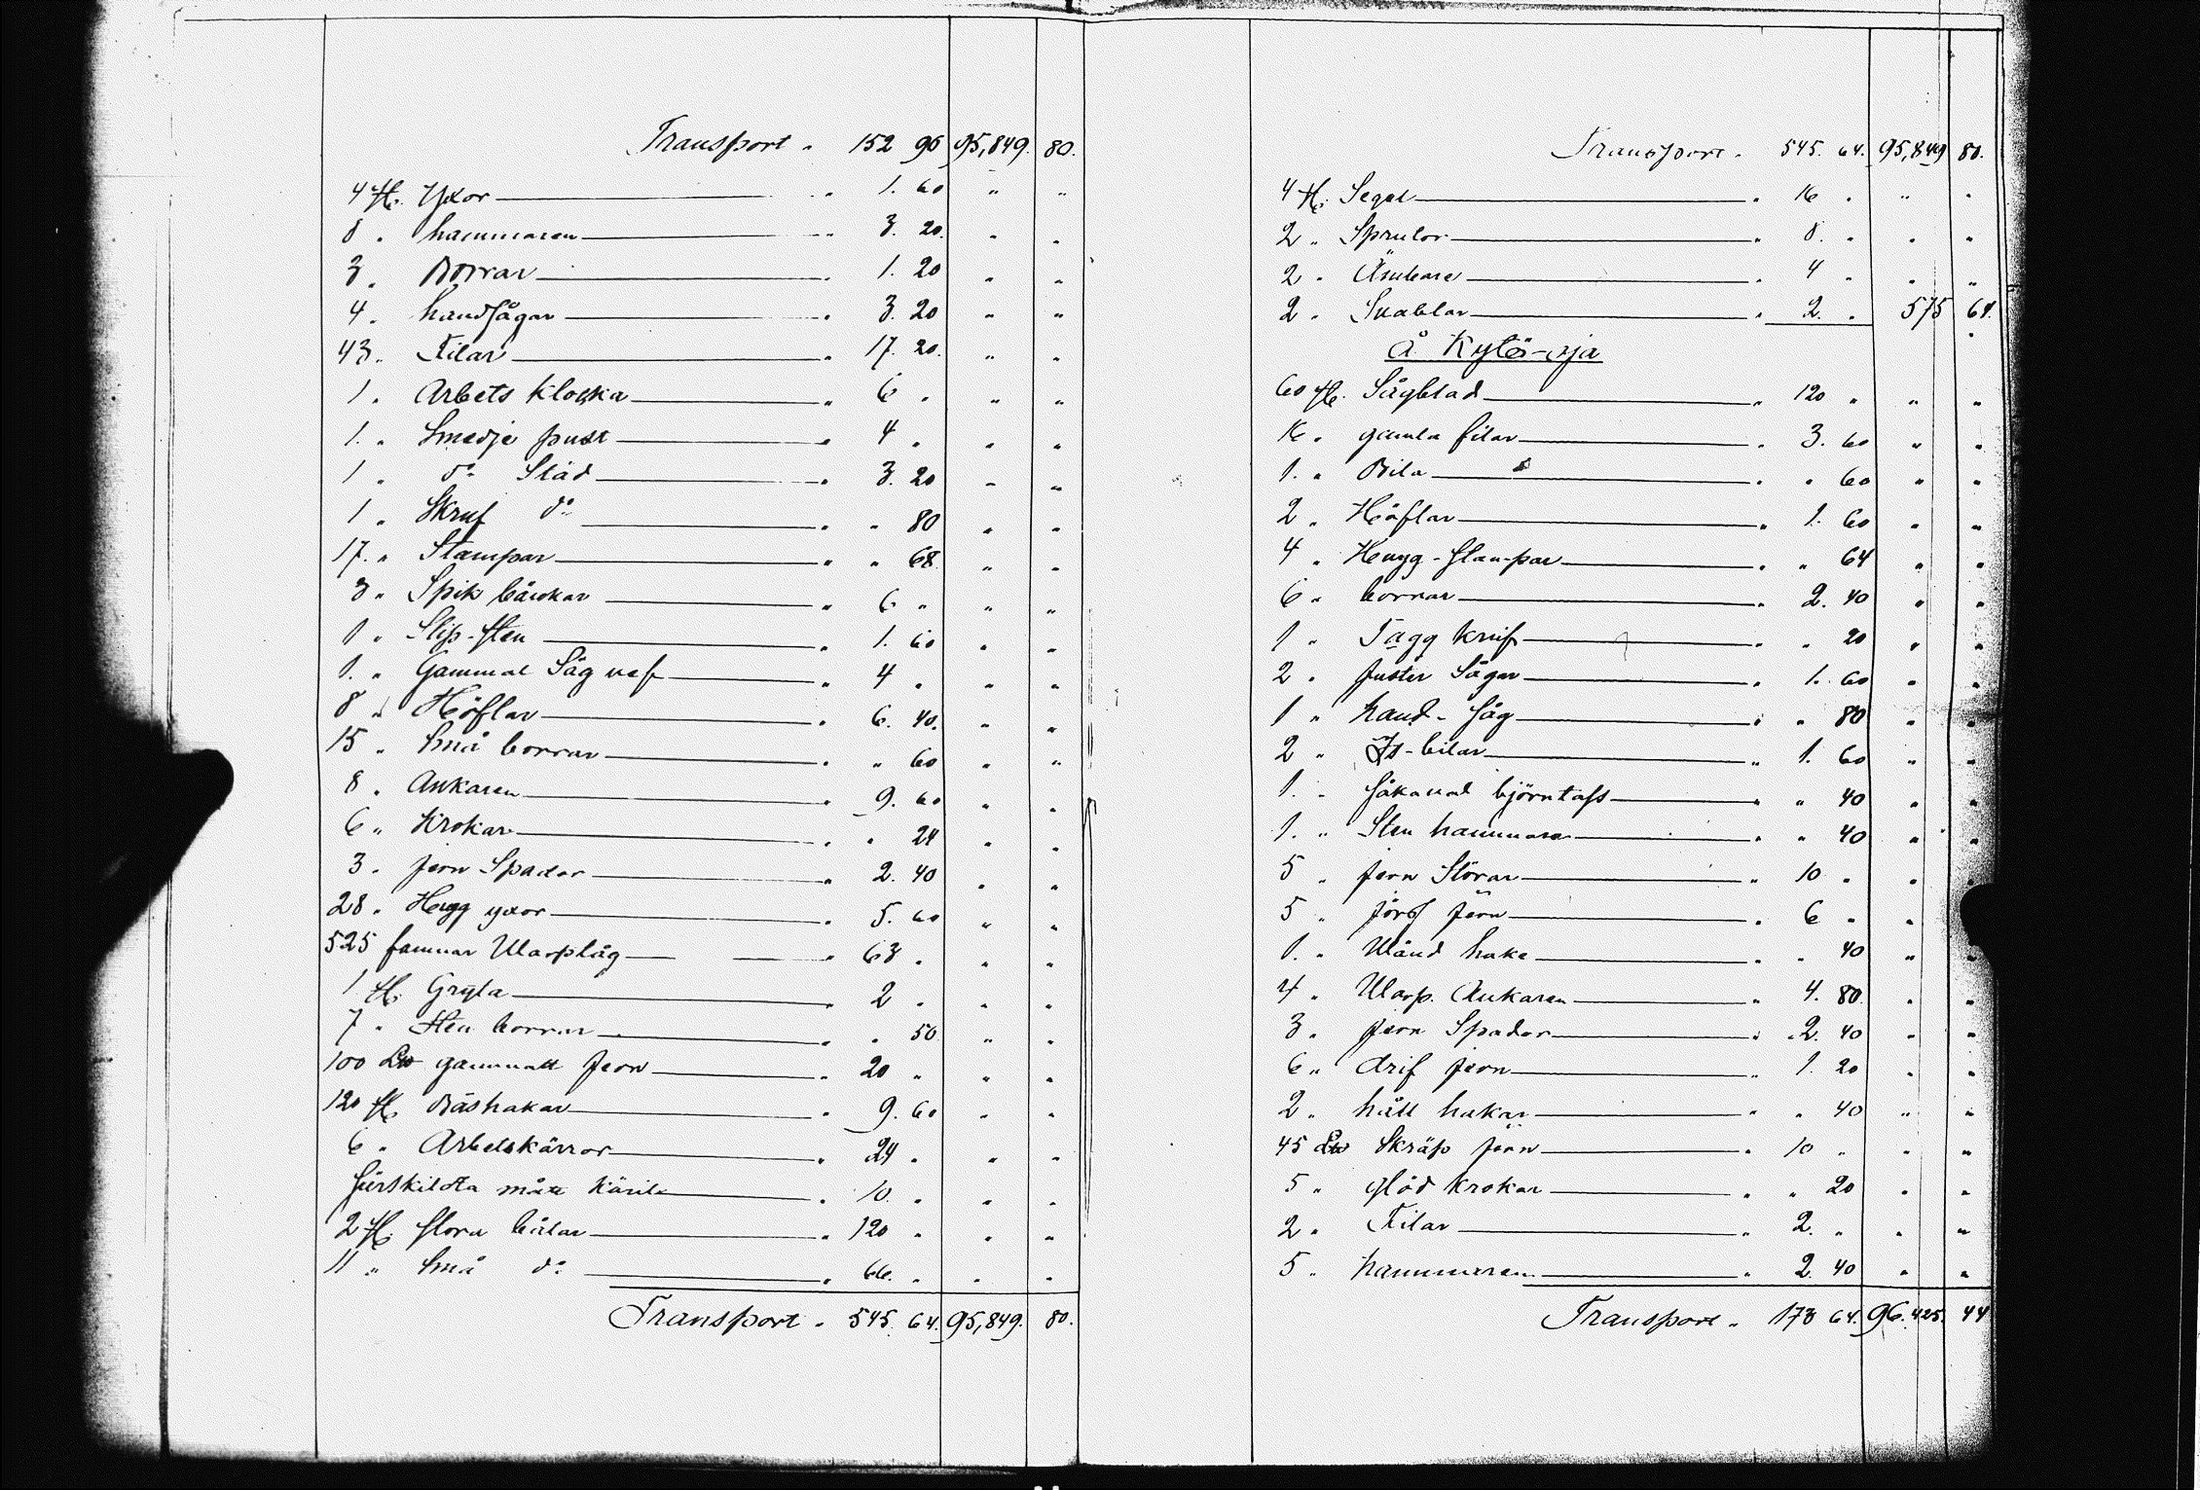 Transport " 152 96 95,849. 80.
4 St. Yxor " 1. 60 " "
8 " hammaren " 3. 20. " "
3 " Borrar " 1. 20 " "
4 " handsågar " 3. 20 " "
43 " Filar " 17. 20. " "
1 " Arbets klocka " 6 " " "
1. " Smedje pust " 4 " " "
1 " do Städ " 3. 20 " "
1 " Skruf do " " 80 " "
17. " Stampar " " 68. " "
3 " Spik bänkar " 6 " " "
1 " Slip-sten " 1. 60 " "
1. " Gammal Såg " 4 " " "
8 " Höflar " 6. 40. " "
15 " Små borrar " " 60 " "
8 " Ankaren " 9. 60 " "
6 " Krokar " " 24 " "
3 " jern Spador " 2. 40 " "
28 " Hugg yxor " 5. 60 " "
525 famnar Warptåg " 63 " " "
1 St. Gryta " 2 " " "
7 " Sten borrar " " 50 " "
100 L℔ gammalt Jern " 20 " " "
120 St. Båshakar " 9. 60 " "
6 " Arbetskärror " 24 " " "
Särskildta mått kärile " 10. " " "
2 St. stora båtar " 120 " " "
11 " Små do " 66. " " "
Transport " 545. 64. 95,849. 80.
Transport " 545. 64. 95,849 80.
4 St. Segel " 16 " " "
2 " " 8. " " "
2 " Ämbare " 4 " " "
2 " Svablar " 2. " 575 64.
Å Kytö-oja
60 St. Sågblad " 120 " " "
16 " gamla filar " 3. 60 " "
1. " Bila " " 60 " "
2 " Höflar " 1. 60 " "
4 " Hugg-stampar " " 64 " "
6 " borrar " 2. 40 " "
1 " Tagg knif " " 20 " "
2 " Juster Sågar " 1. 60 " "
1 " hand-såg " " 80 " "
2 " Is-bilar " 1. 60 " "
1. " såkallad björntass " " 40 " "
1. " Sten hammare " " 40 " "
5 " jern Störar " 10 " " "
5 " jern " 6 " " "
1. " Wänd hake " " 40 " "
4 " Warp. Ankaren " 4. 80. " "
3 " jern Spador " 2. 40 " "
6 " drif jern " 1. 20 " "
2 " håll hakar " " 40 " "
45 L℔ Skräp jern " 10 " " "
5 " glöd krokar " " 20 " "
2 " Filar " 2. " " "
5 " hammaren " 2. 40 " "
Transport " 173 64. 96.425. 44